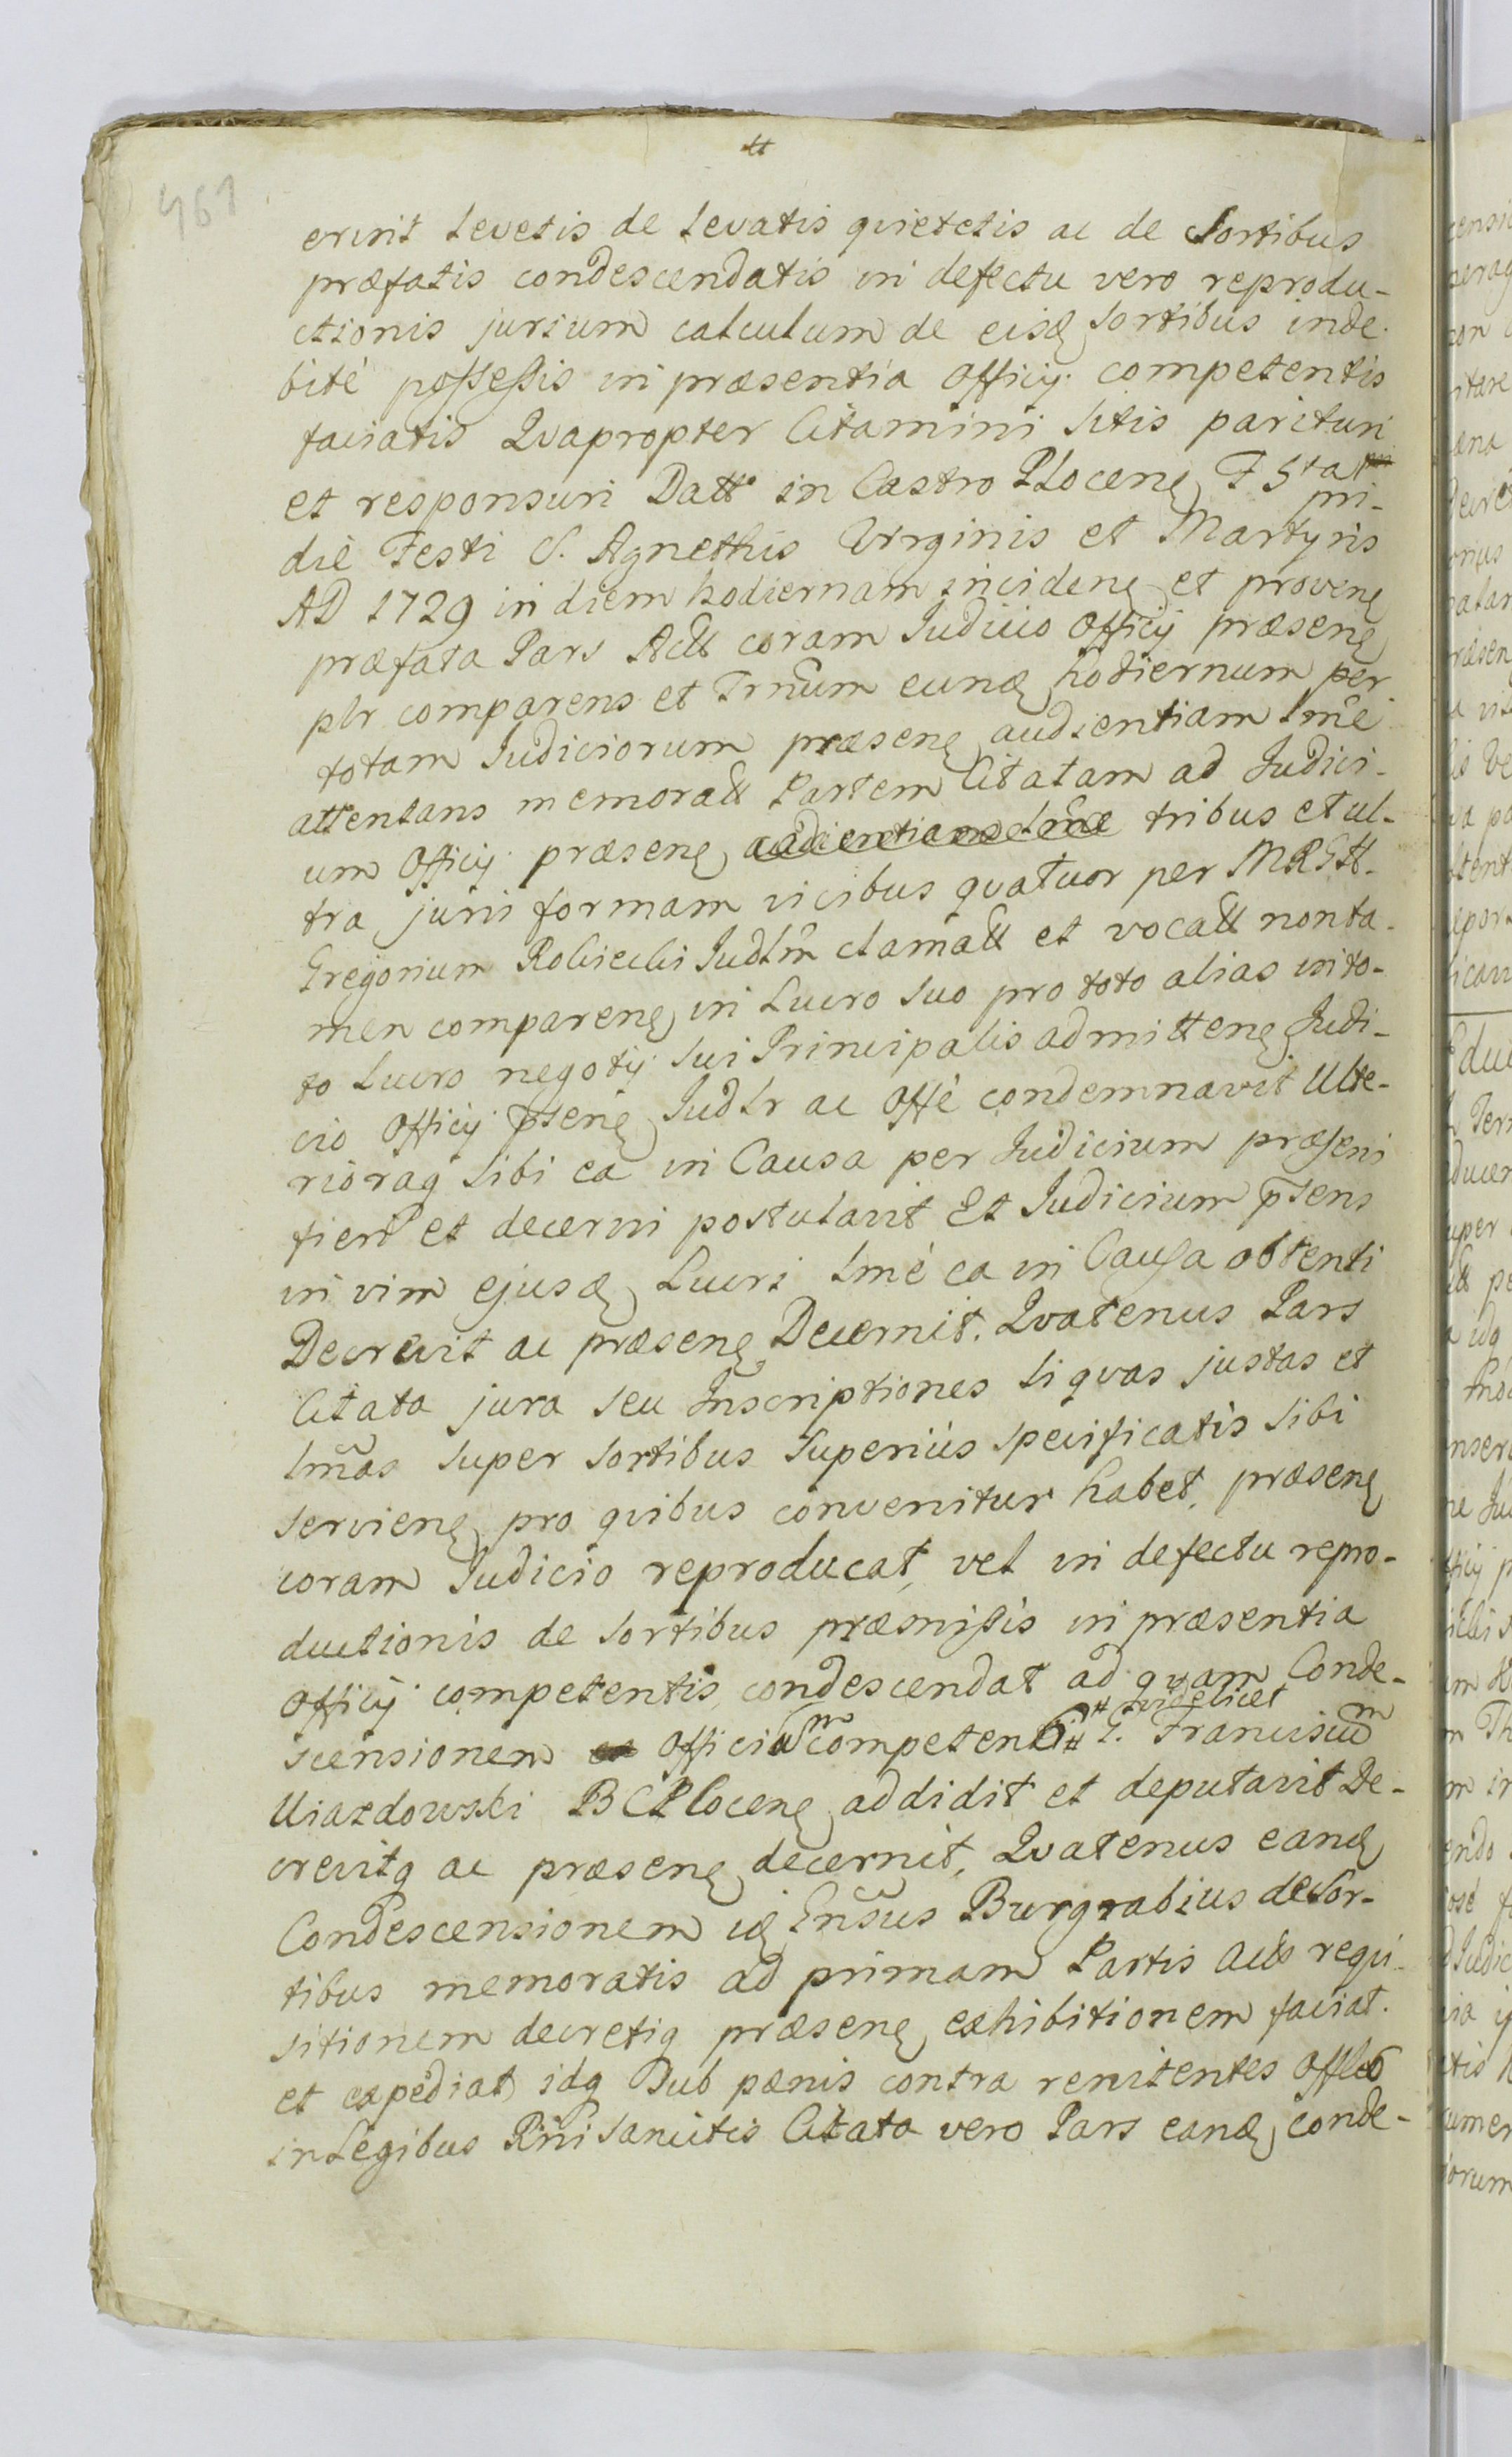 461
tt
erint levetis de levatis quietetis ac de Sortibus
præfatis condescendatis in defectu vero reprodu-
ctionis jursum calculum de eisđ sortibus inde-
bitè possessis in præsentia Officij competentis
faciatis Qvapropter Citamini sitis parituri
et responsuri Datt in Castro Plocenȩ F 5ta pri-
diè Festi S. Agnethis Virginis et Martyris
AD 1729 in diem hodiernam incidenȩ et provenȩ
præfata Pars Actt coram Judicio Officij præsenȩ
plr comparens et Trnũm eunđ hodiernum per
totam Judiciorum præsenȩ audientiam lmè
attentans memoratt Partem Citatam ad Judici-
um Officij præsenȩ tribus et ul-
tra juri formam vicibus qvatuor per MRGtt
Gregorium Robiecki Judlm clamatt et vocatt non ta-
men comparenȩ in Lucro suo pro toto alias in to-
to Lucro negotij sui Principalis admittenȩ Judi-
cio Officij p̃senȩ Judlr ac Offè condemnavit Ulte-
rioraq sibi ea in Causa per Judicium præsens
fieri et decerni postulavit Et Judicium p̃sens
in vim ejusđ Lucri lmè ea in Causa obtenti
Decrevit ac præsenȩ Decernit. Qvatenus Pars
Citata jura seu Inscriptiones si qvas justas et
lmas super sortibus superiùs specificatis sibi
servienȩ pro qvibus convenitur habet, præsenȩ
coram Judicio reproducat, vel in defectu repro-
ductionis de sortibus præmissis in præsentia
Officij competentis condescendat ad qvam Conde-
# qvidelicet
scensionem Officium competens # G. Franciscum
Uiazdowski BCPlocenȩ addidit et deputavit De-
crevitq ac præsenȩ decernit, Qvatenus eanđ
Condescensionem iđ Gnsus Burgrabius de Sor-
tibus memoratis ad primam Partis Actt reqvi-
sitionem decretiq præsenȩ exhibitionem faciat
et expediat idq Sub pœnis contra renitentes Offles
in Legibus Rñi sancitis Citata vero Pars eanđ conde-